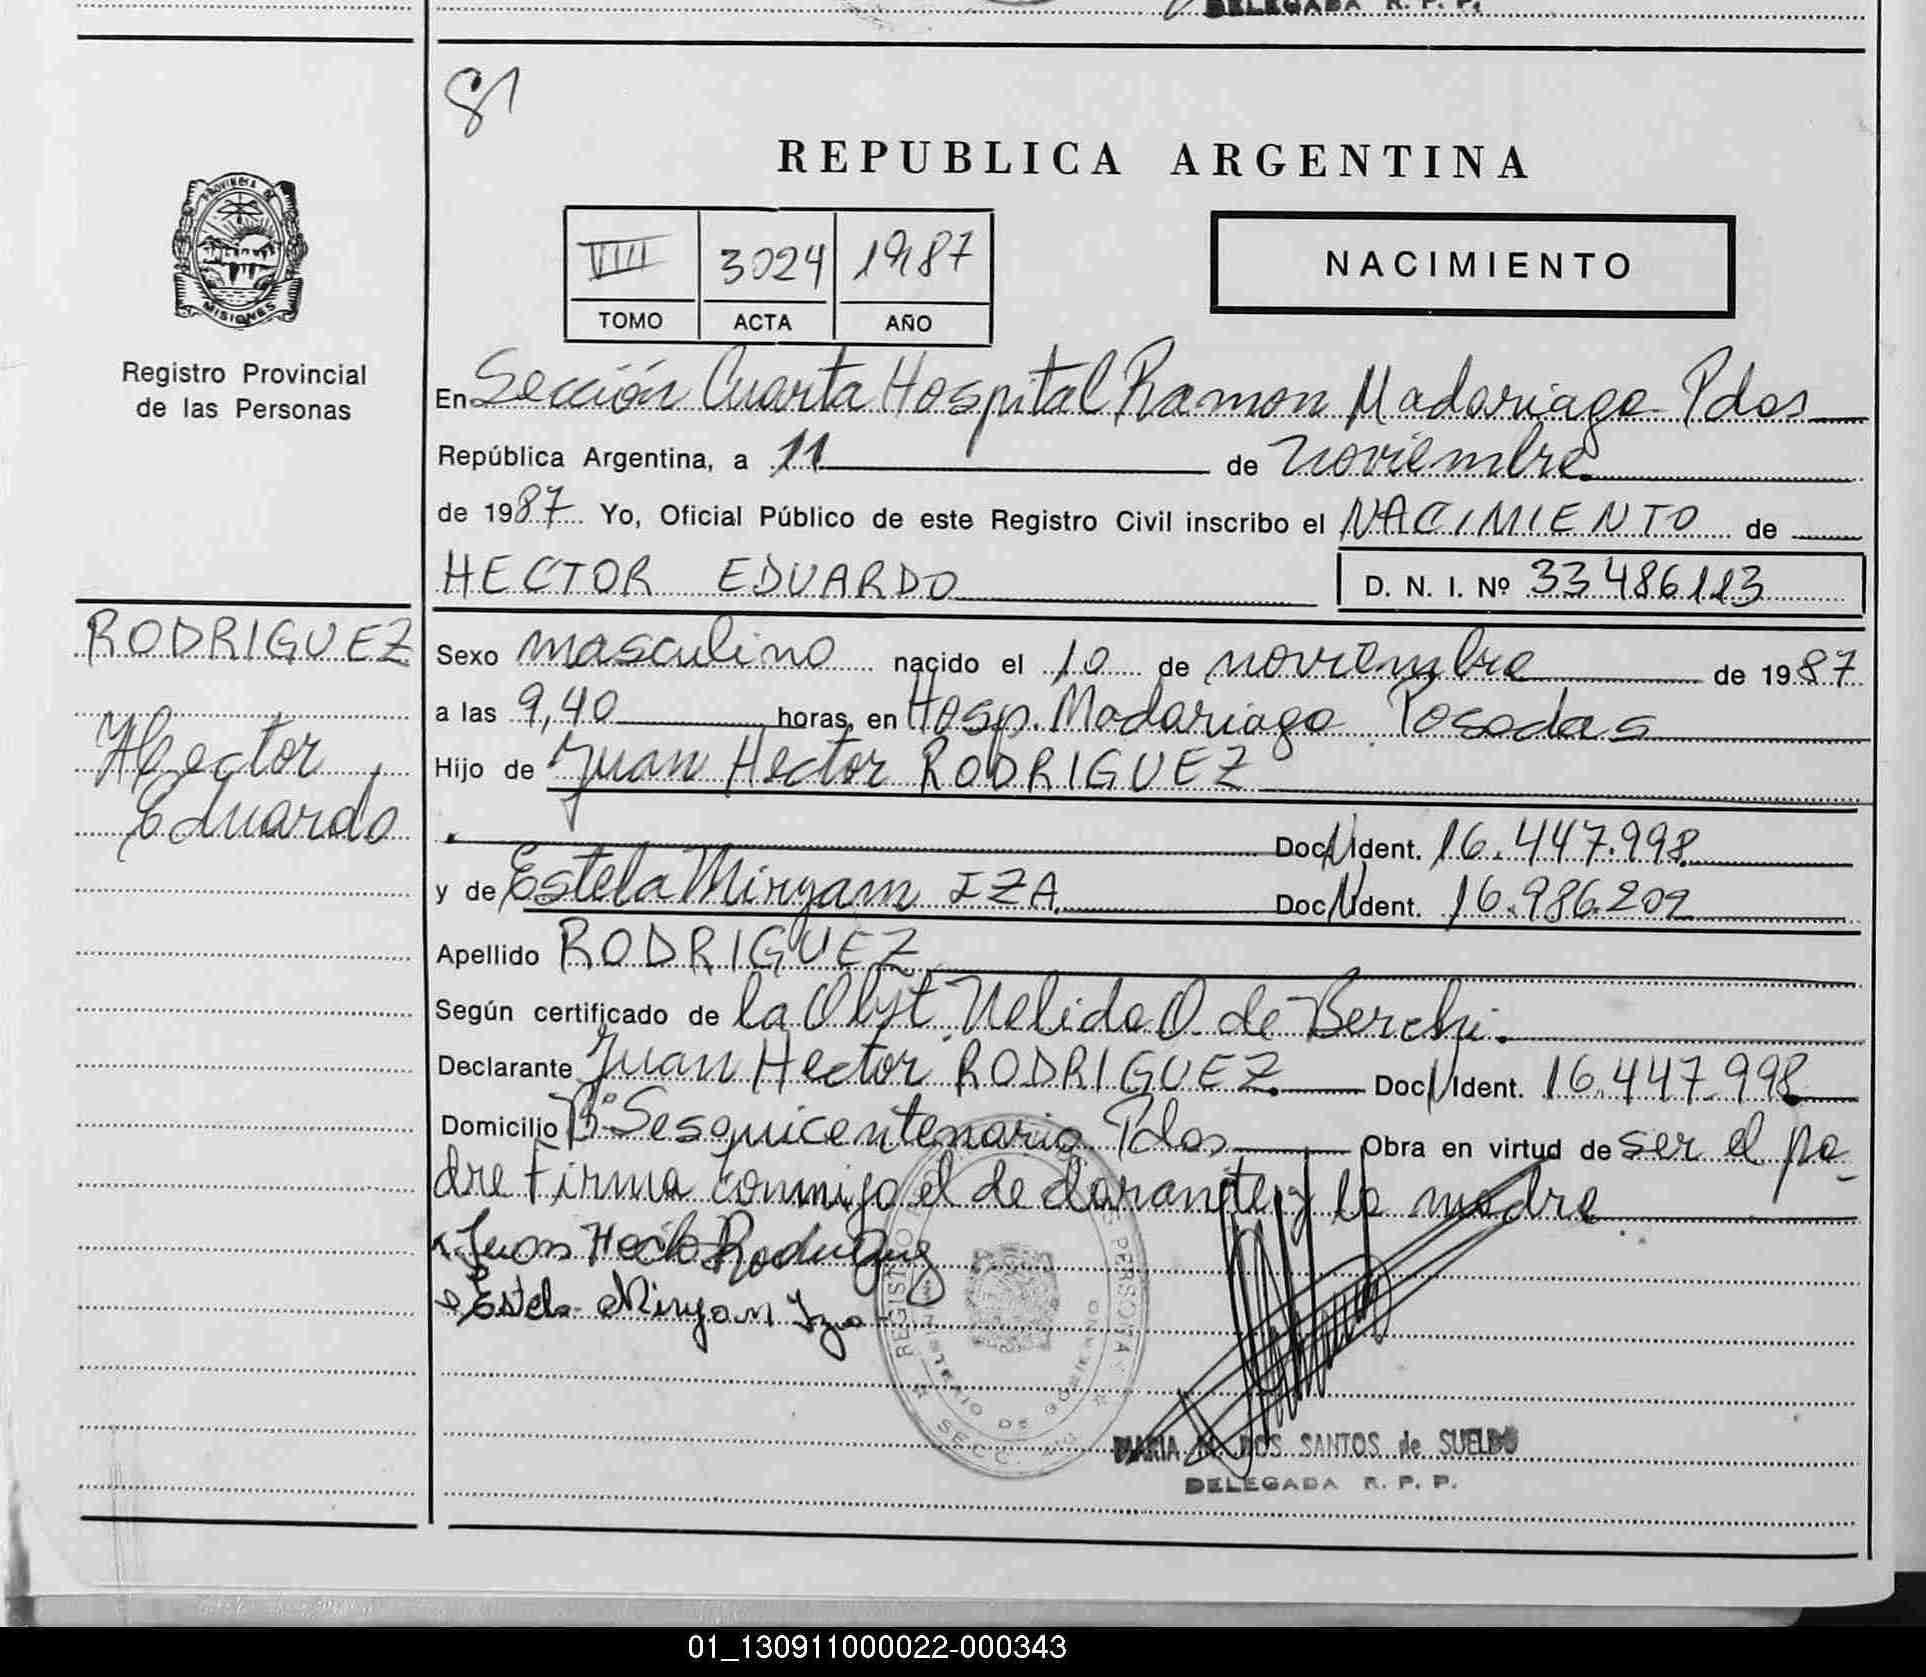 DELEGADA R. P. P.
81
REPUBLICA ARGENTINA
PROVINCIA DE
MISIONES
Registro Provincial
de las Personas
VIII 3024 1987
TOMO ACTA AÑO
NACIMIENTO
En Sección Cuarta Hospital Ramon Madariaga Pdas
República Argentina, a 11 de noviembre
de 1987 Yo, Oficial Público de este Registro Civil inscribo el NACIMIENTO de
HECTOR EDUARDO D. N. I. Nº 33486113
RODRIGUEZ
Hector
Eduardo
Sexo masculino nacido el 10 de noviembre de 1987
a las 9,40 horas, en Hosp. Madariaga Posadas
Hijo de Juan Hector RODRIGUEZ
Doc. Ident. 16.447.998
y de Estela Miryam IZA Doc. Ident. 16.986.202
Apellido RODRIGUEZ
Según certificado de la Obst. Nelida O. de Berchi.
Declarante Juan Hector RODRIGUEZ Doc. Ident. 16.447.998
Domicilio Bº Sesquicentenario Pdas Obra en virtud de ser el pa-
dre firma conmigo el declarante y la madre
Juan Hector Rodriguez
Estela Miryam Iza
REGISTRO PERSONAS
MINISTERIO DE GOBIERNO
SECC. 4ta
MARIA DOS SANTOS de SUELDO
DELEGADA R. P. P.
01_130911000022-000343